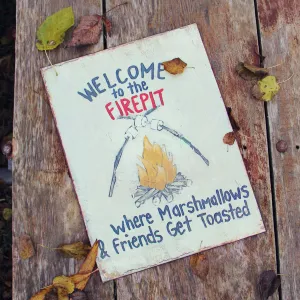 WELCOME
to the
FIREPIT
Where Marshmallows
& Friends Get Toasted